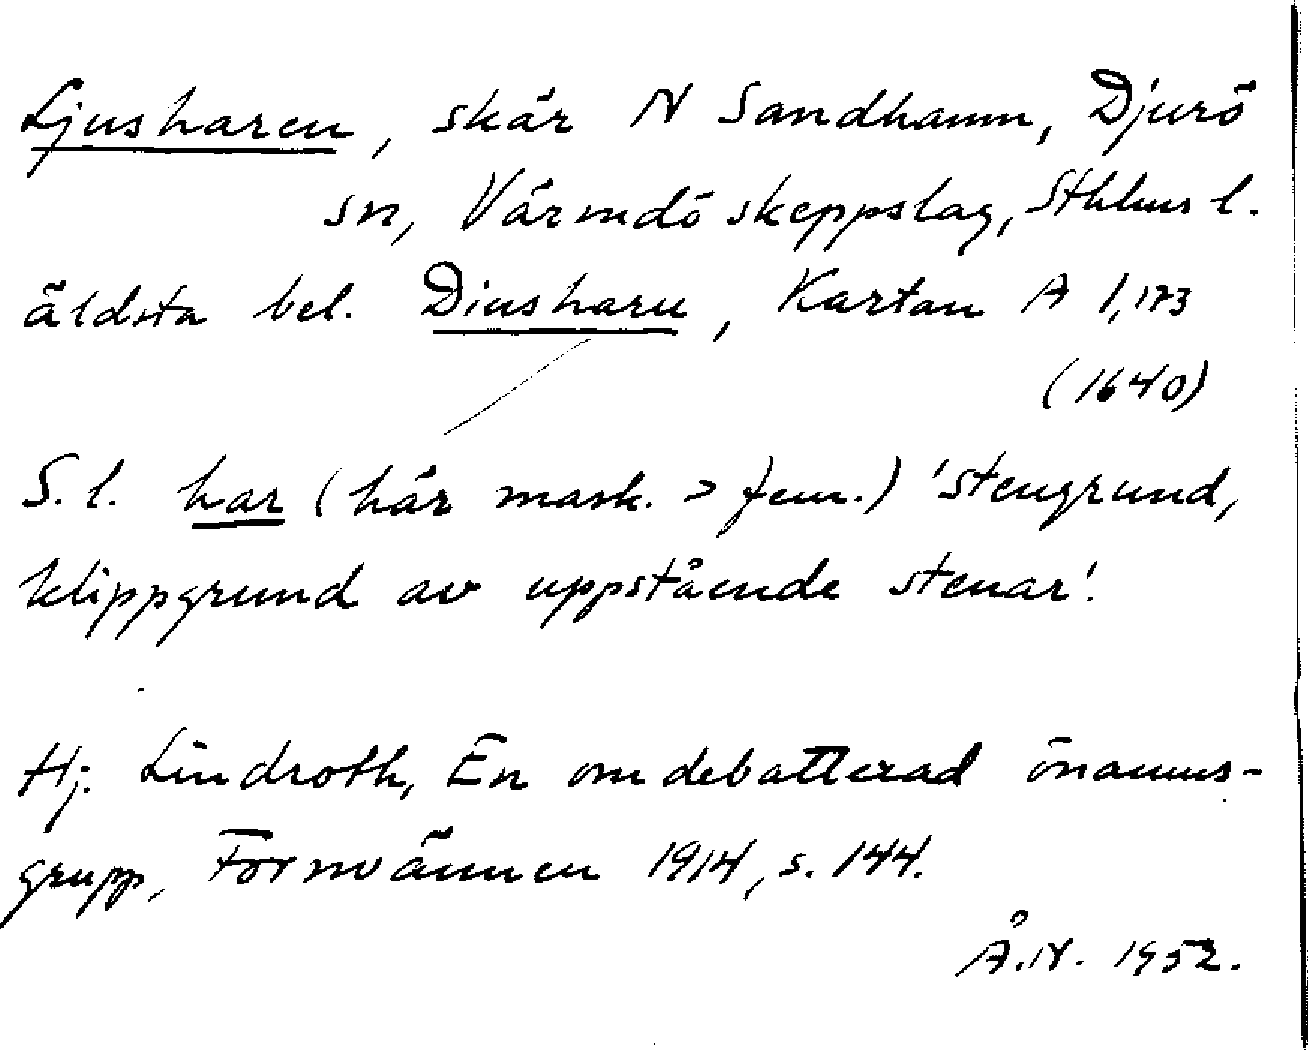 Ljusharen, skär N Sandhamn, Djurö
sn, Värmdö skeppslag, Sthlms l.
äldsta bel. Diusharu, Kartan A 1,173
(1640)
S. l. har (här mask. > fem.) 'stengrund,
klippgrund av uppstående stenar'.
Hj. Lindroth, En omdebatterad önamns-
grupp, Fornvännen 1914, s. 144.
Å.N. 1952.